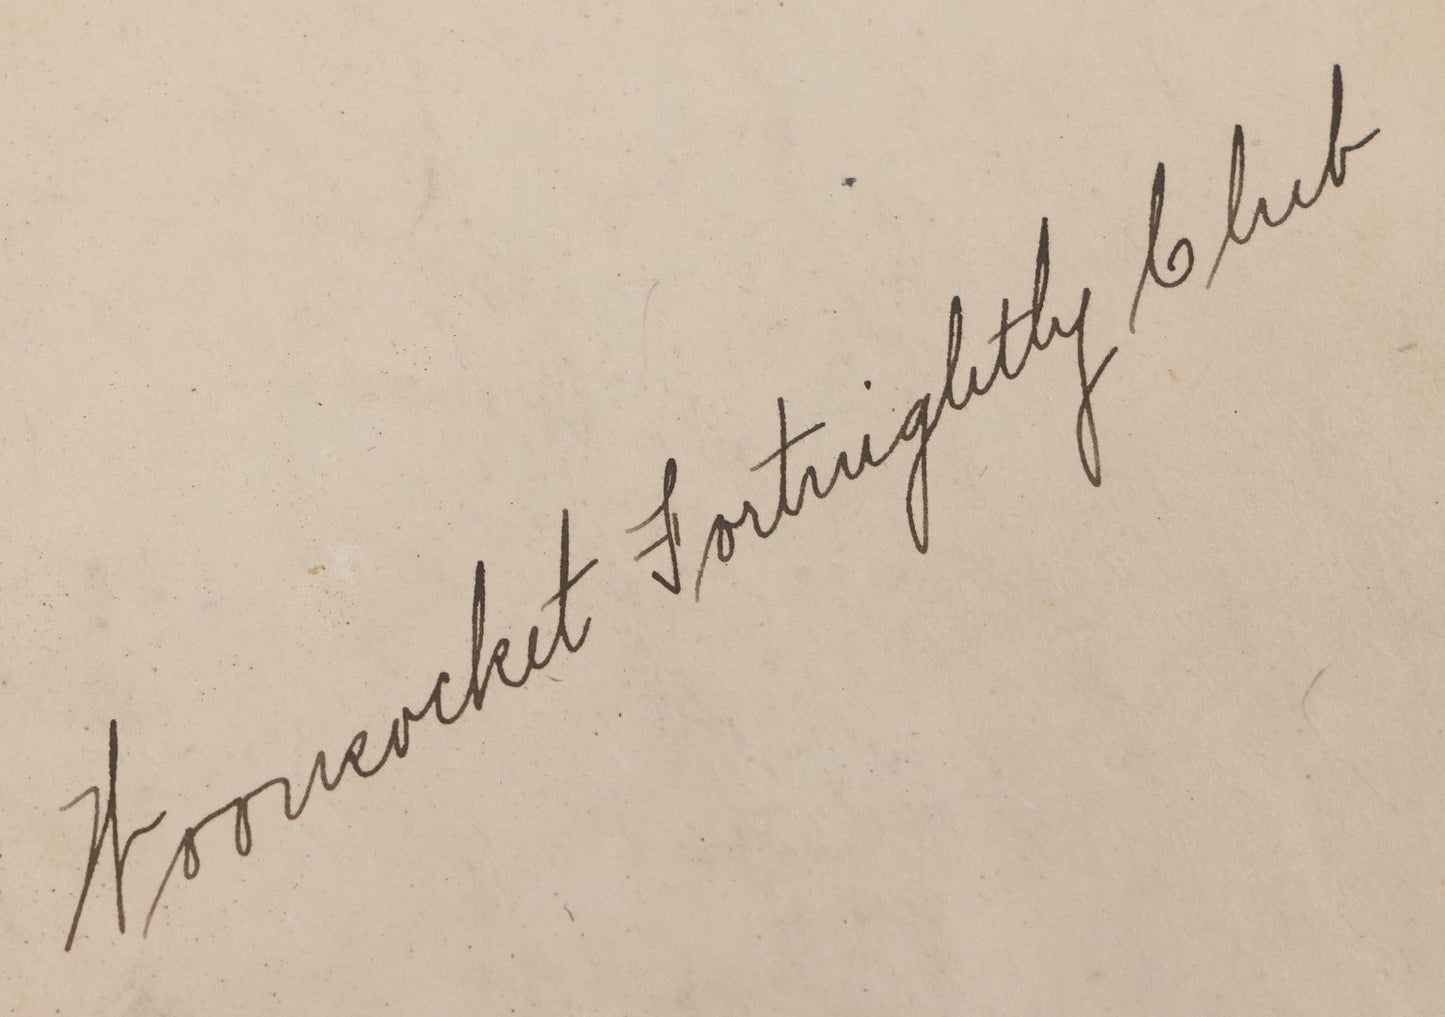 Woonsocket Fortnightly Club